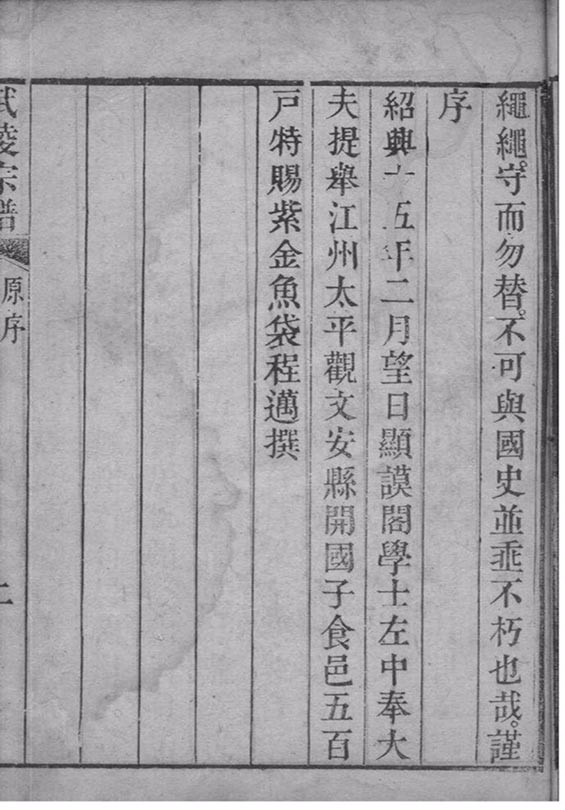 繩繩。守而勿替。不可與國史並乖不朽也哉。謹
序
紹興十五年二月望日顯謨閣學士左中奉大
夫提舉江州太平觀文安縣開國子食邑五百
戸特賜紫金魚袋程邁撰
武陵宗譜
原序
二